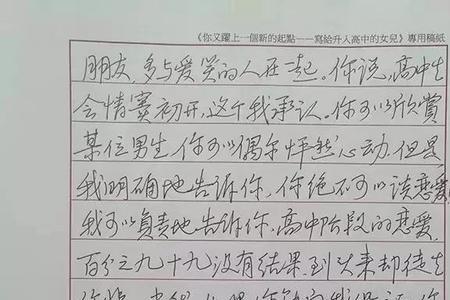 《你又躍上一個新的起點——寫給升入高中的女兒》專用稿紙
朋友，多与爱笑的人在一起。你说，高中生
会情窦初开，这个我承认，你可以欣赏
某位男生，你可以偶尔怦然心动，但是
我明确地告诉你，你绝不可以谈恋爱，
我可以負責地告诉你，高中阶段的恋爱，
百分之九十九没有结果，到头来却徒生